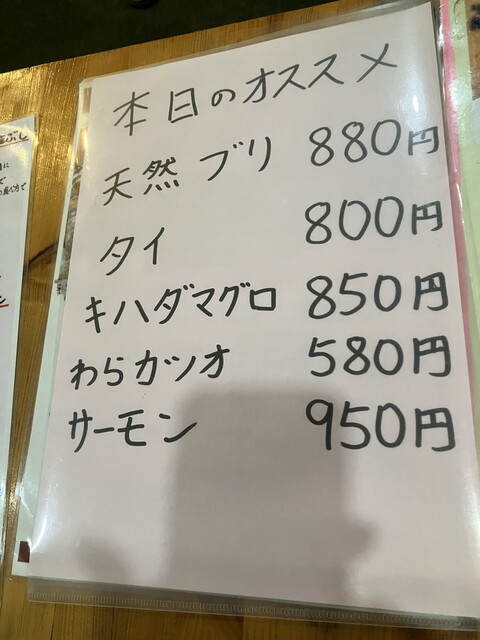 本日のオススメ
天然 ブリ 880円
タイ 800円
キハダマグロ 850円
わらカツオ 580円
サーモン 950円